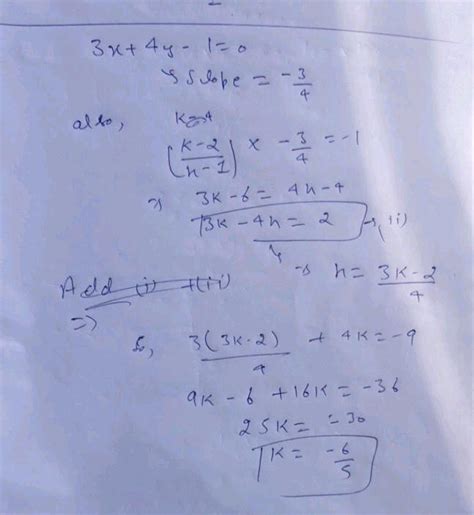 3x + 4y - 1 = 0
Slope = -3/4
also,
((k-2)/(h-1)) × -3/4 = -1
3k - 6 = 4h - 4
3k - 4h = 2 → (ii)
→ h = (3k-2)/4
Add (i) + (ii)
⇒
So, 3(3k-2)/4 + 4k = -9
9k - 6 + 16k = -36
25k = -30
k = -6/5